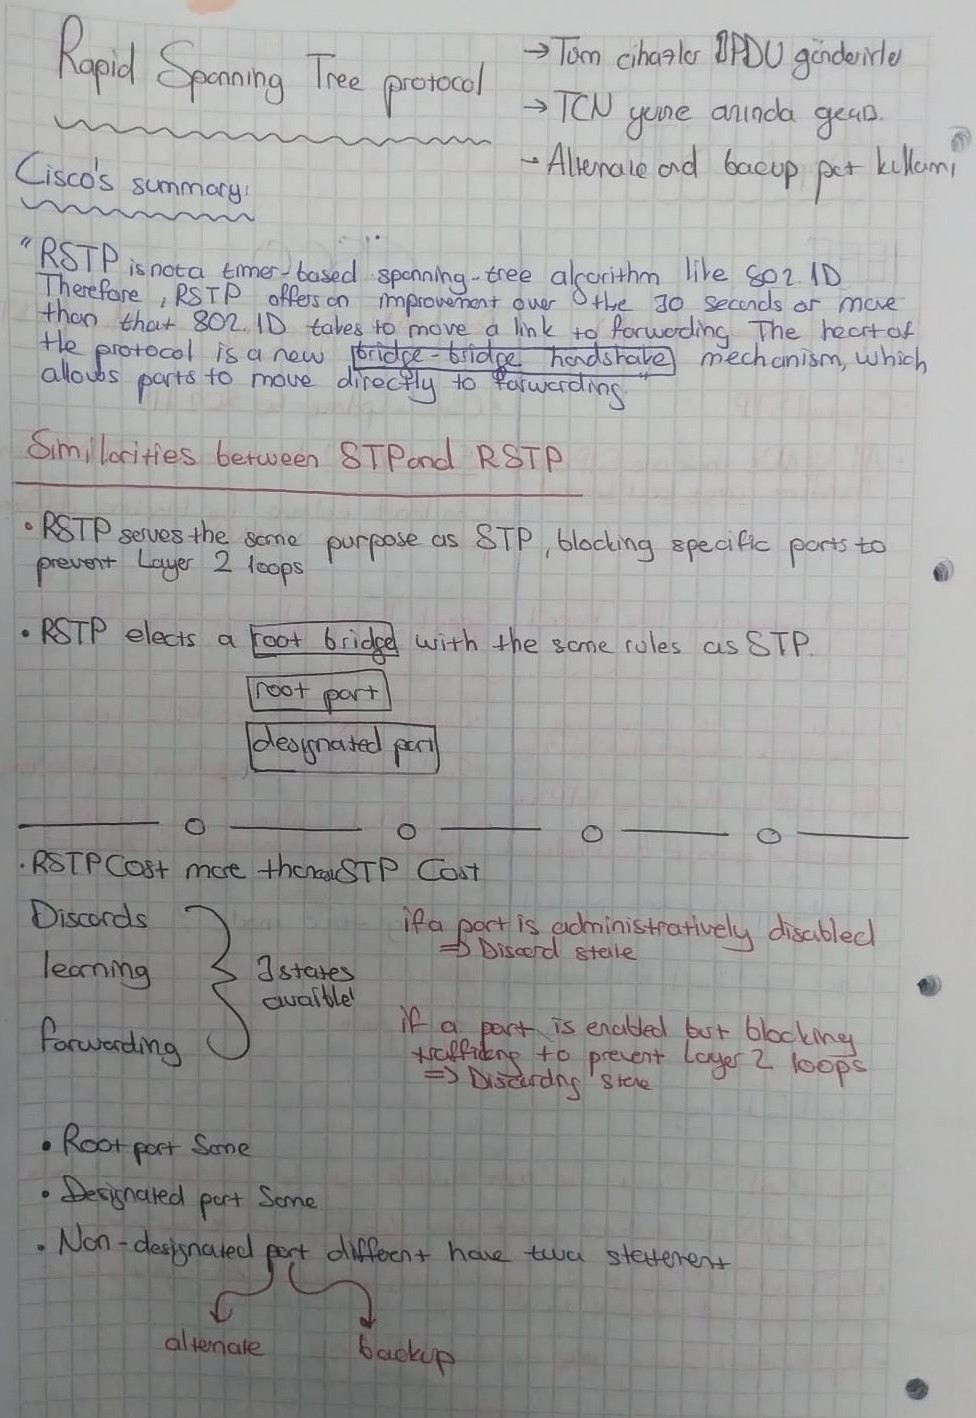 Rapid Spanning Tree protocol
→ Tüm cihazlar BPDU gönderirler
→ TCN yerine anında geçiş.
→ Alternate and bacup port kullanımı
Cisco's summary:
"RSTP is not a timer-based spanning-tree algorithm like 802.1D
Therefore, RSTP offers an improvement over the 30 seconds or more
than that 802.1D takes to move a link to forwarding. The heart of
the protocol is a new bridge-bridge handshake mechanism, which
allows ports to move directly to forwarding."
Similarities between STP and RSTP
• RSTP serves the same purpose as STP, blocking specific ports to
prevent Layer 2 loops
• RSTP elects a root bridge with the same rules as STP.
root port
designated port
• RSTP Cost more than STP Cost
Discards
learning
forwarding
3 states
avaible!
if a port is administratively disabled
=> Discard state
if a port is enabled but blocking
to prevent Layer 2 loops
=> Discarding state
• Root port Same
• Designated port Same
• Non-designated port different have two statement
alternate
backup